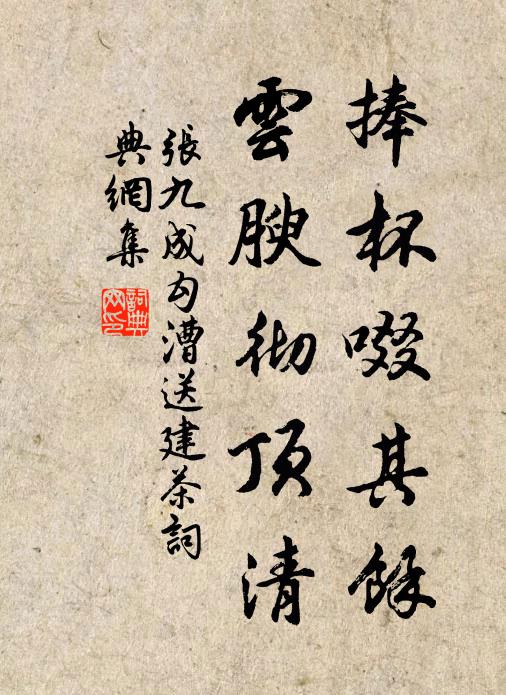 捧杯啜其餘
雲腴彻頂清
張九成勾漕送建茶詞
典網集
詞典
网印